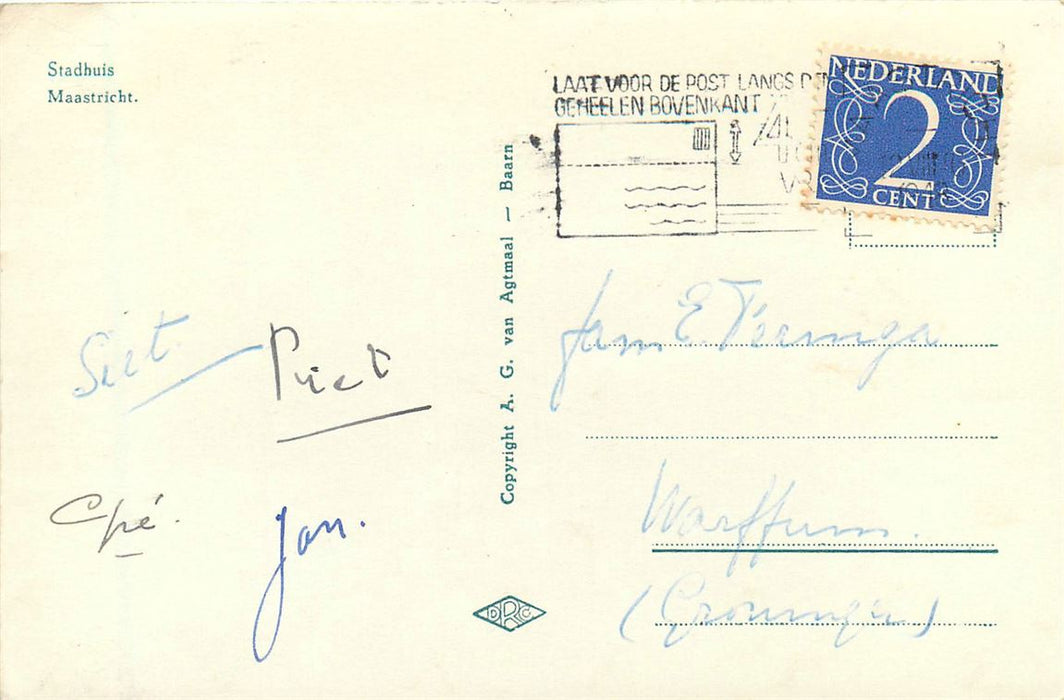 Stadhuis
Maastricht.
LAAT VOOR DE POST LANGS DEN
GEHEELEN BOVENKANT
NEDERLAND
2
CENT
Copyright A. G. van Agtmaal — Baarn
Siet
Piet
Cpé.
Jan.
Fam E. Teeringa
Warffum.
(Groningen)
DRC